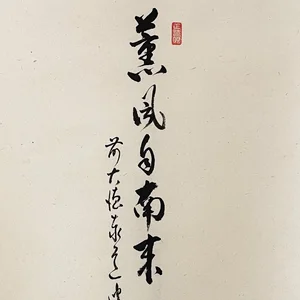 薫風自南来
前大徳